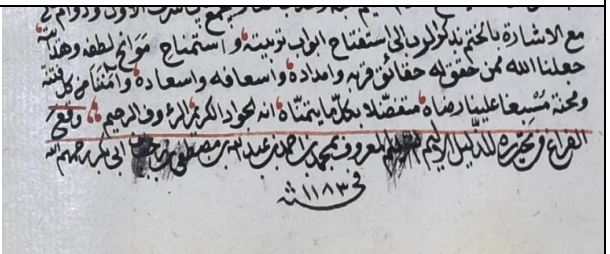 مع الاشارة بالختم بذكر الرب الى استفتاح ابواب تربيته واستمناح موانح لطفه وهدايته
جعلنا الله ممن حقق له حقائق قربه وامداده واسعافه واسعاده وآمننا من كل فتنة
ومحنة مسبغا علينا رضاه متفضلا بكل ما يتمناه انه الجواد الكريم الرؤوف الرحيم وقع
الفراغ من تحريره للذليل المعروف بمحمد بن احمد بن عبد الله بن مصطفى بن ابي بكر رحمهم الله
في ١١٨٣